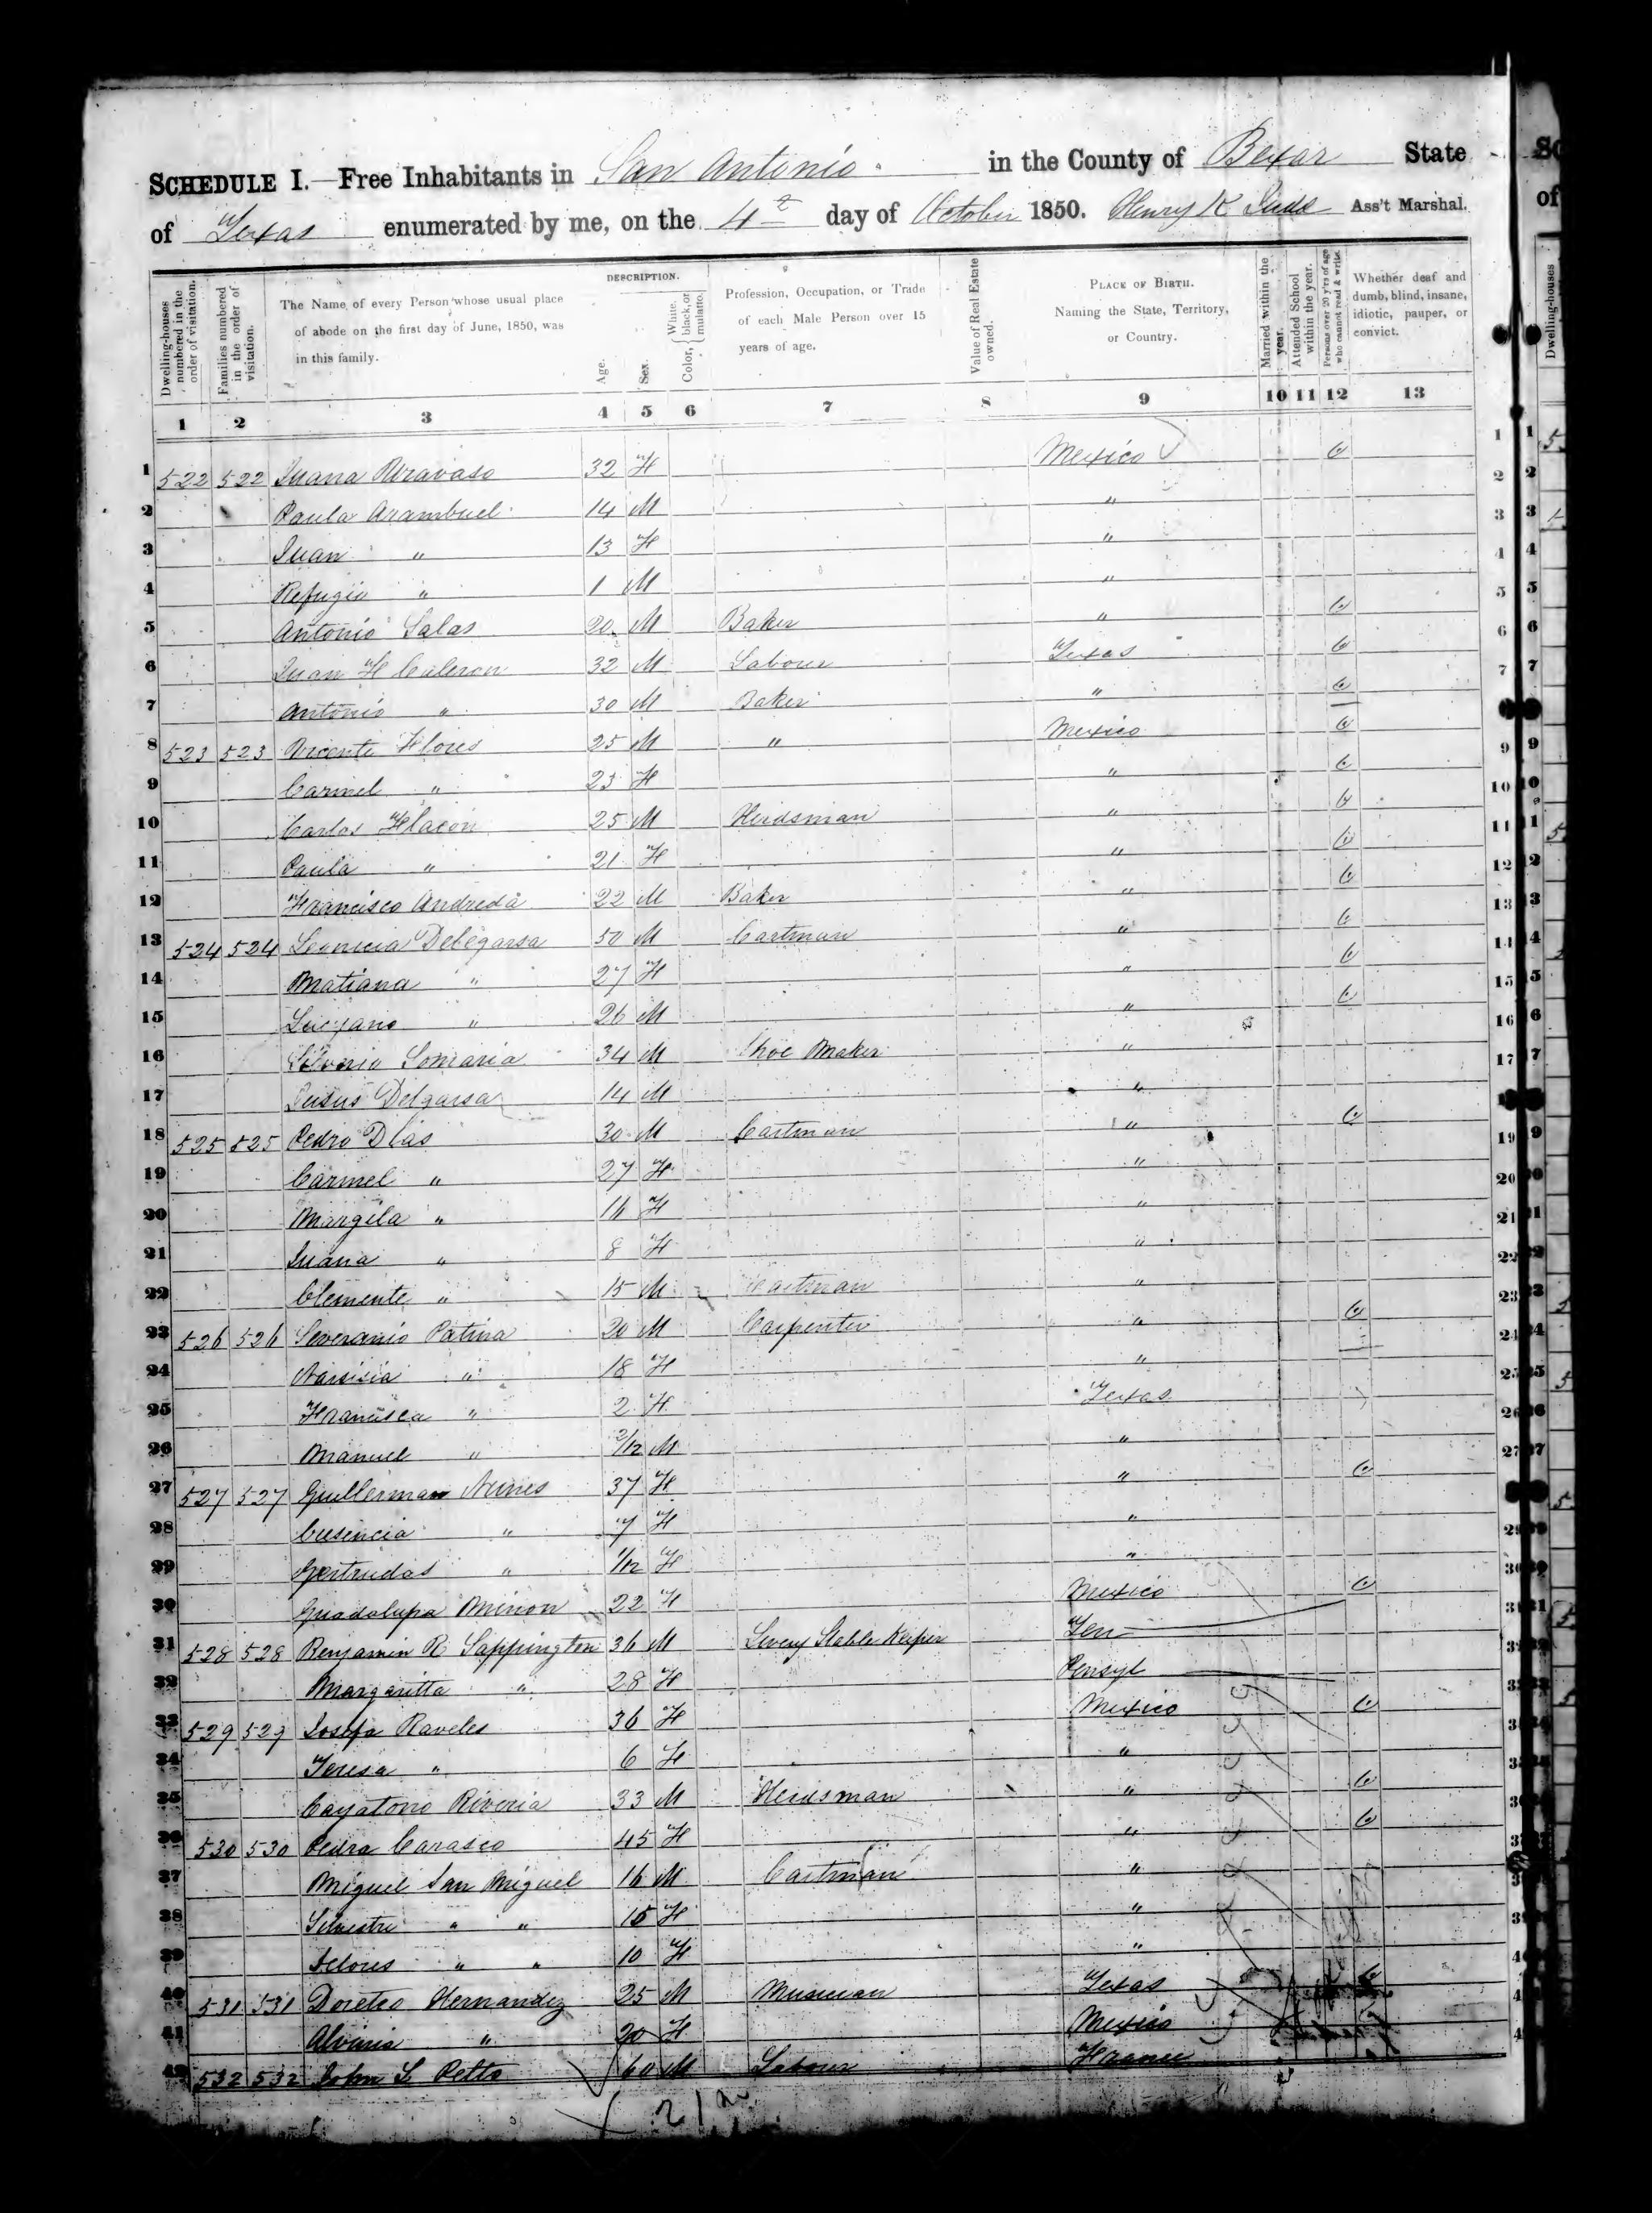 SCHEDULE I.—Free Inhabitants in San Antonio in the County of Bexar State
of Texas enumerated by me, on the 4th day of October 1850. Henry K Judd Ass't Marshal.
Dwelling-houses numbered in the order of visitation.
Families numbered in the order of visitation.
The Name of every Person whose usual place of abode on the first day of June, 1850, was in this family.
DESCRIPTION.
Age.
Sex.
Color, { White, black, or mulatto.
Profession, Occupation, or Trade of each Male Person over 15 years of age.
Value of Real Estate owned.
PLACE OF BIRTH. Naming the State, Territory, or Country.
Married within the year.
Attended School within the year.
Persons over 20 y'rs of age who cannot read & write.
Whether deaf and dumb, blind, insane, idiotic, pauper, or convict.
1 2 3 4 5 6 7 8 9 10 11 12 13
1 522 522 Juana 32 F Mexico 1
2 Paula Arambuel 14 M " 2
3 Juan " 13 F " 3
4 Refugio " 1 M " 4
5 Antonio Salas 20 M Baker " 5
6 Juan F Calcron 32 M Labour Texas 6
7 Antonio " 30 M Baker " 7
8 523 523 Vicente Flores 25 M " Mexico
9 Carmel " 23 F " 9
10 Carlos Flacon 25 M Herdsman " 10
11 Paula " 21 F " 11
12 Francisco Andreda 22 M Baker " 12
13 524 524 Leonicia Delegarsa 50 M Cartman " 13
14 Matiana " 27 F " 14
15 Lucyano " 26 M " 15
16 Silverio Somaria 34 M Shoe Maker " 16
17 Jesus Delgarsa 14 M " 17
18 525 525 Pedro Dias 30 M Cartman "
19 Carmel " 27 F " 19
20 Margila " 16 F " 20
21 Juana " 8 F " 21
22 Clemente " 15 M Cartman " 22
23 526 526 Severanio Patina 20 M Carpenter " 23
24 Narsisia " 18 F " 24
25 Francisca " 2 F Texas 25
26 Manuel " 2/12 M " 26
27 527 527 Guillerman Nunes 37 F " 27
28 Cresencia " 7 F "
29 Gertrudas " 1/12 F " 29
30 Guadalupa Minon 22 F Mexico 30
31 528 528 Benjamin R Sappington 36 M Livery Stable Keeper Ten 31
32 Margaritta " 28 F Pensyl
33 529 529 Josefa Raveles 36 F Mexico
34 Teresa " 6 F "
35 Cayatono Riveria 33 M Herdsman "
36 530 530 Pedra Carasco 45 F "
37 Miguel San Miguel 16 M Cartman "
38 Silvestre " " 15 F "
39 Delores " " 10 F "
40 531 531 Doreteo Hernandez 25 M Musician Texas
41 Alvinia " 20 F Mexico
42 532 532 John L Petts 60 M Labour France